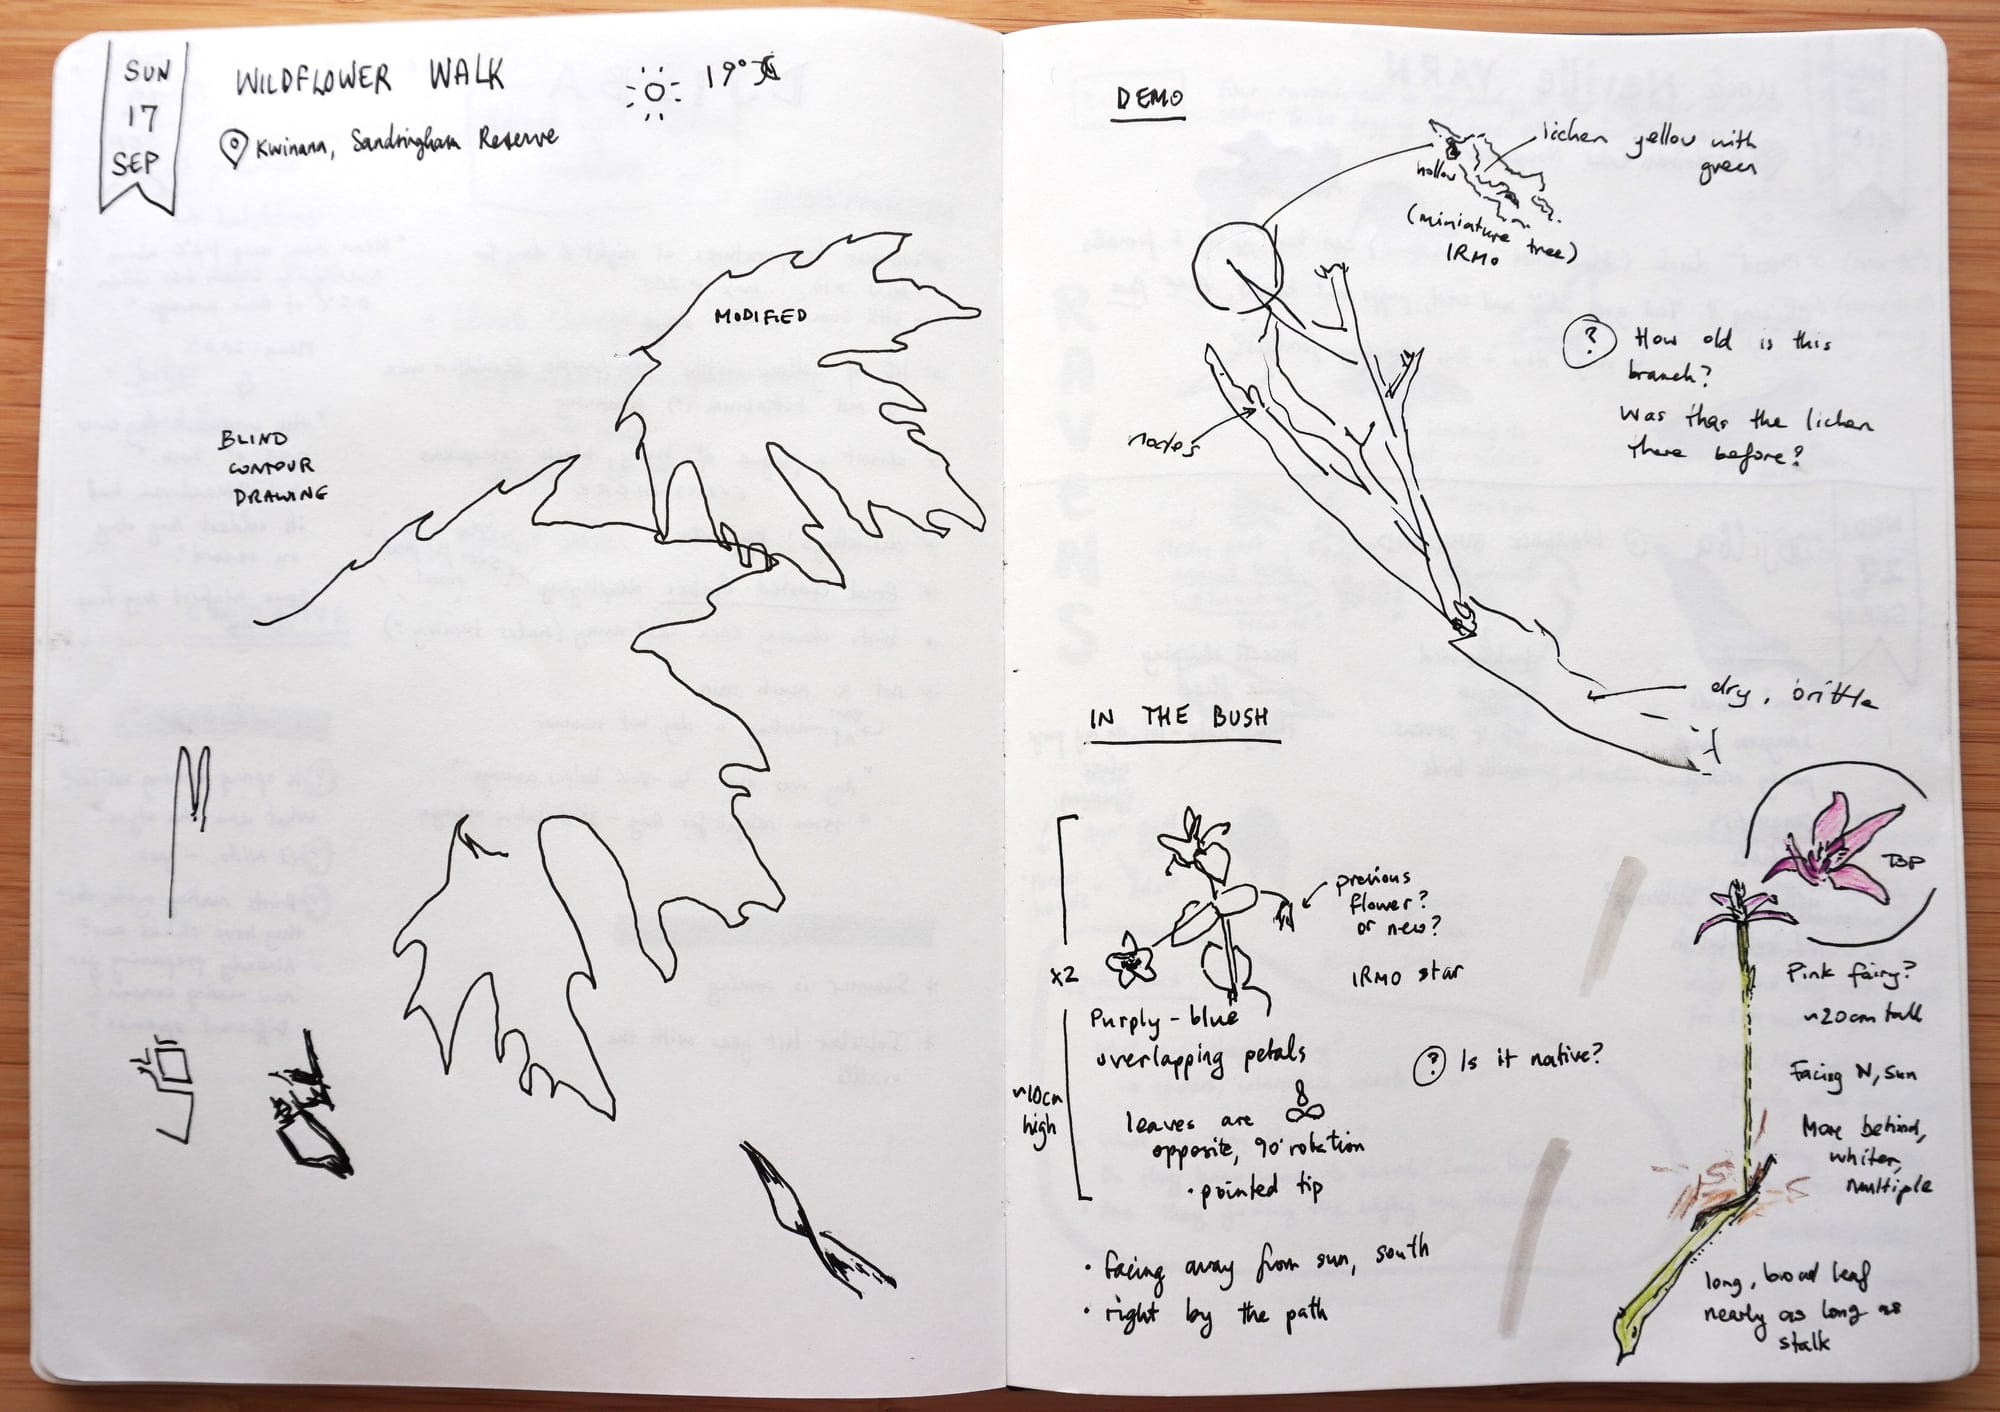 SUN
17
SEP
WILDFLOWER WALK
Kwinana, Sandringham Reserve
19°C
MODIFIED
BLIND
CONTOUR
DRAWING
DEMO
lichen yellow with
green
hollow
(miniature tree)
IRMO
? How old is this
branch?
Was the lichen
there before?
nodes
dry, brittle
IN THE BUSH
previous
flower?
or new?
x2
IRMO star
Purply-blue
overlapping petals
? Is it native?
~10cm
high
leaves are
opposite, 90° rotation
· pointed tip
· facing away from sun, south
· right by the path
TOP
Pink fairy?
~20cm tall
Facing N, sun
More behind,
whiter,
multiple
long, broad leaf
nearly as long as
stalk